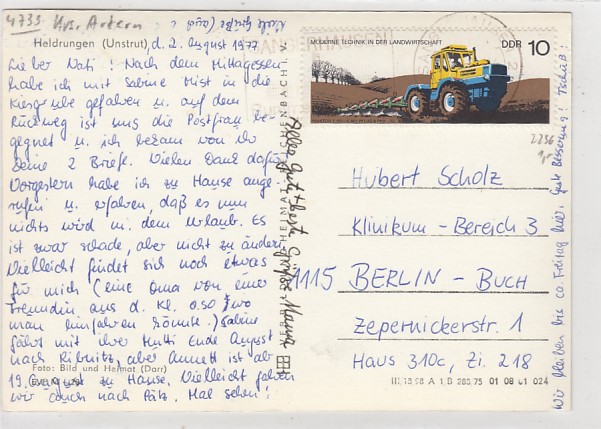 4733 Krs. Artern
Viele Grüße (auch)
Heldrungen (Unstrut), d. 2. August 1977
Lieber Vati! Nach dem Mittagessen
habe ich mit Sabine Mist in die
Kiesgrube gefahren u. auf dem
Rückweg ist uns die Postfrau be-
gegnet u. ich bekam von ihr
Deine 2 Briefe. Vielen Dank dafür
Vorgestern habe ich zu Hause ange-
rufen u. erfahren, daß es nun
nichts wird m. dem Urlaub. Es
ist zwar schade, aber nicht zu ändern.
Vielleicht findet sich noch etwas
für mich (eine Oma von einer
Freundin aus d. Kl. o. so, wo
man hinfahren könnte.) Sabine
fährt mit ihrer Mutti Ende August
nach Ribnitz, aber Annett ist ab
19. August zu Hause. Vielleicht fahren
wir auch nach Pätz. Mal sehen!
Foto: Bild und Heimat (Darr)
Alles Gute + beste Grüße
BILD UND HEIMAT REICHENBACH I. V.
MODERNE TECHNIK IN DER LANDWIRTSCHAFT
DDR 10
2236
Hubert Scholz
Klinikum - Bereich 3
1115 BERLIN - BUCH
Zepernickerstr. 1
Haus 310c, Zi. 218
A 1 B 286/75 01 08 01 024
Wir bleiben bis ca. Freitag hier. Gute Besserung! Tschüß!